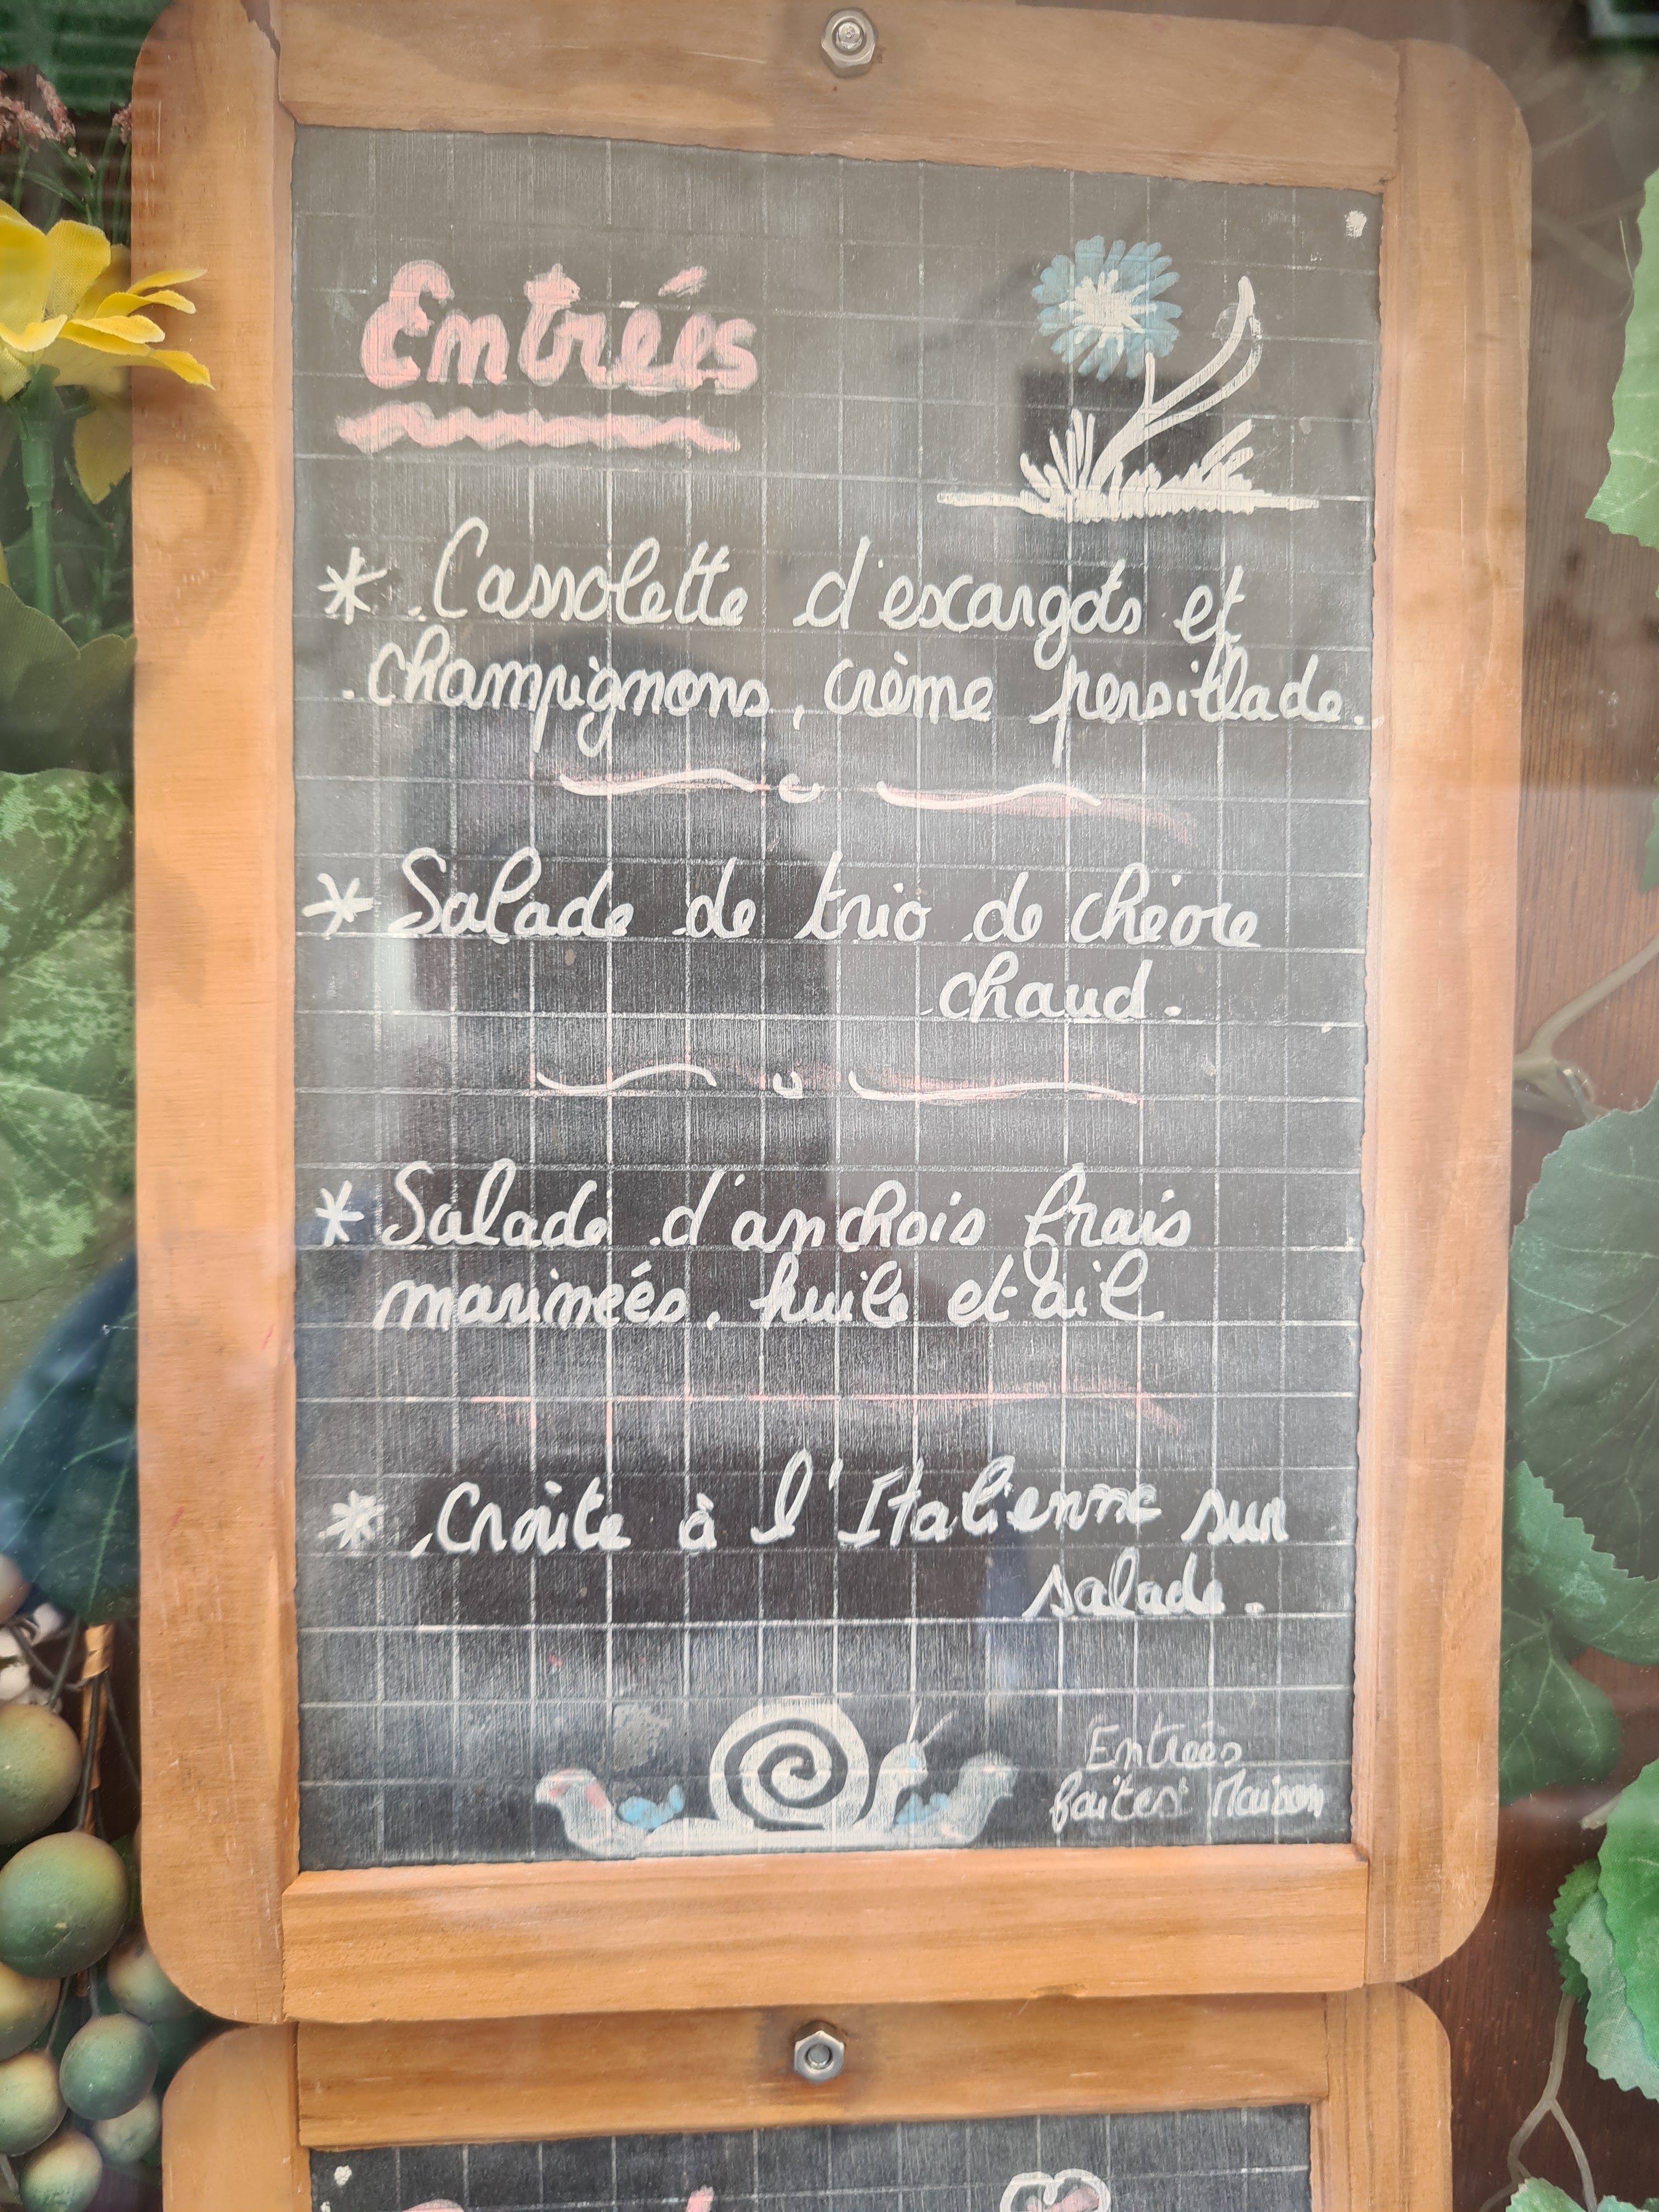 Entrées
* Cassolette d'escargots et
champignons, crème persillade.
* Salade de trio de chèvre
chaud.
* Salade d'anchois frais
marineés, huile et ail
* Croûte à l'Italienne sur
salade.
Entrées
faites Maison